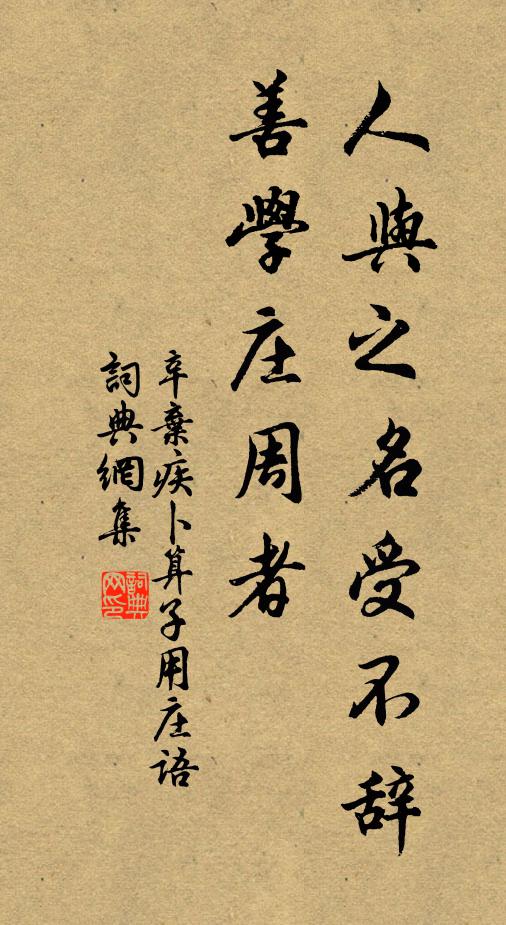 人與之名受不辞
善學庄周者
辛棄疾卜算子用庄語
詞典網集
詞典网印